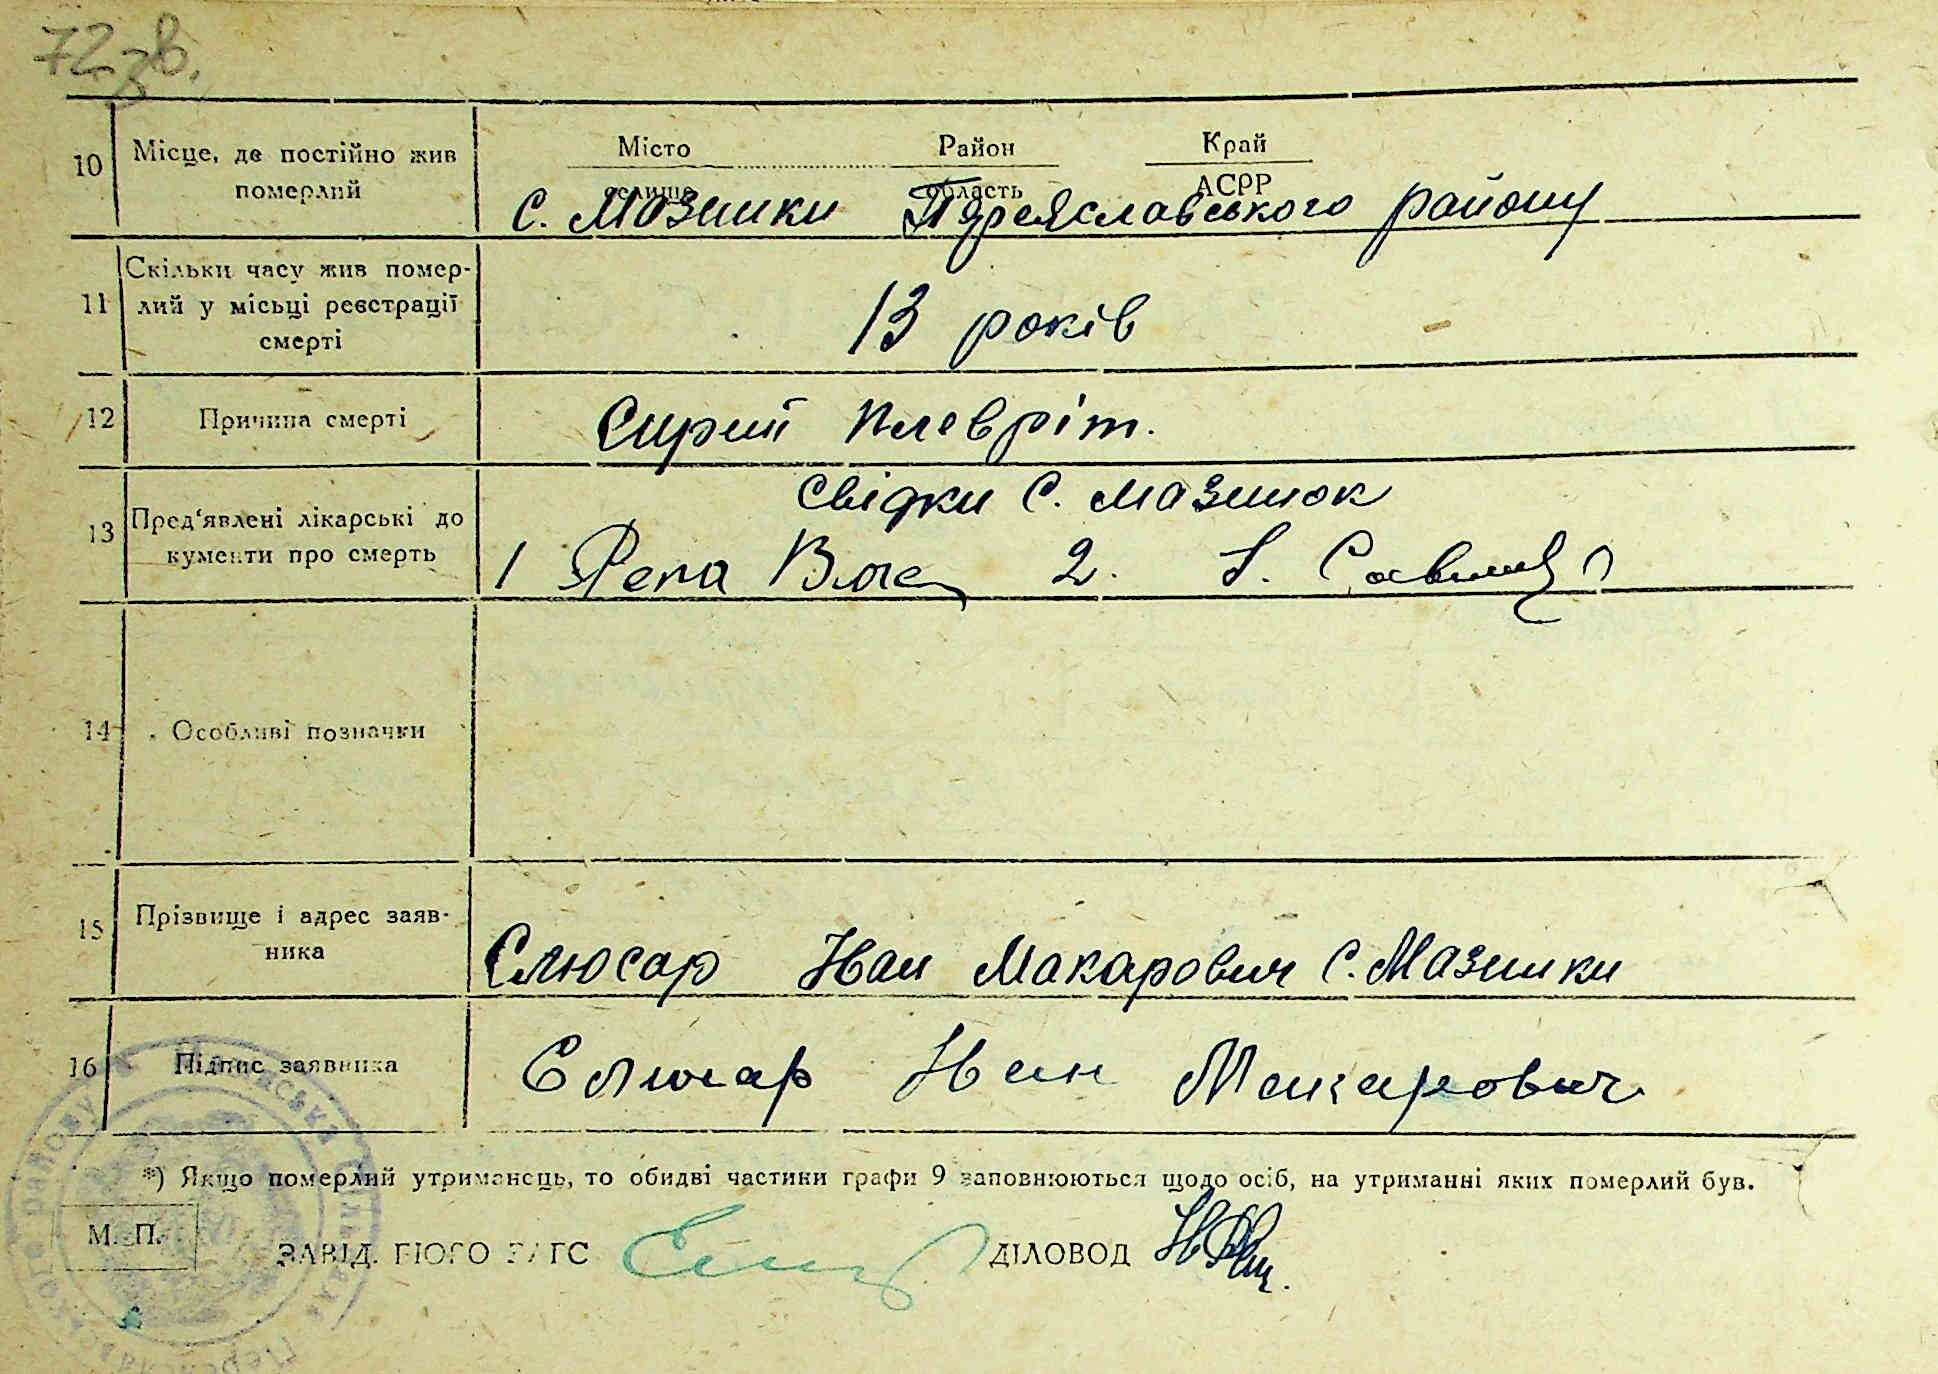 72 зв.
10
Місце, де постійно жив
померлий
Місто Район Край
селище область АСРР
с. Мазинки Переяславського району
11
Скільки часу жив помер-
лий у місьці реєстрації
смерті
13 років
12
Причина смерті
Сирий плевріт.
13
Пред'явлені лікарські до
кументи про смерть
свідки с. Мазинок
1 Репа Влас 2. І.
14
Особливі позначки
15
Прізвище і адрес заяв-
ника
Слюсар Іван Макарович с. Мазинки
16
Підпис заявника
Слюсар Іван Макарович
*) Якщо померлий утриманець, то обидві частини графи 9 заповнюються щодо осіб, на утриманні яких померлий був.
М. П.
ЗАВІД. БЮРО ЗАГС ДІЛОВОД